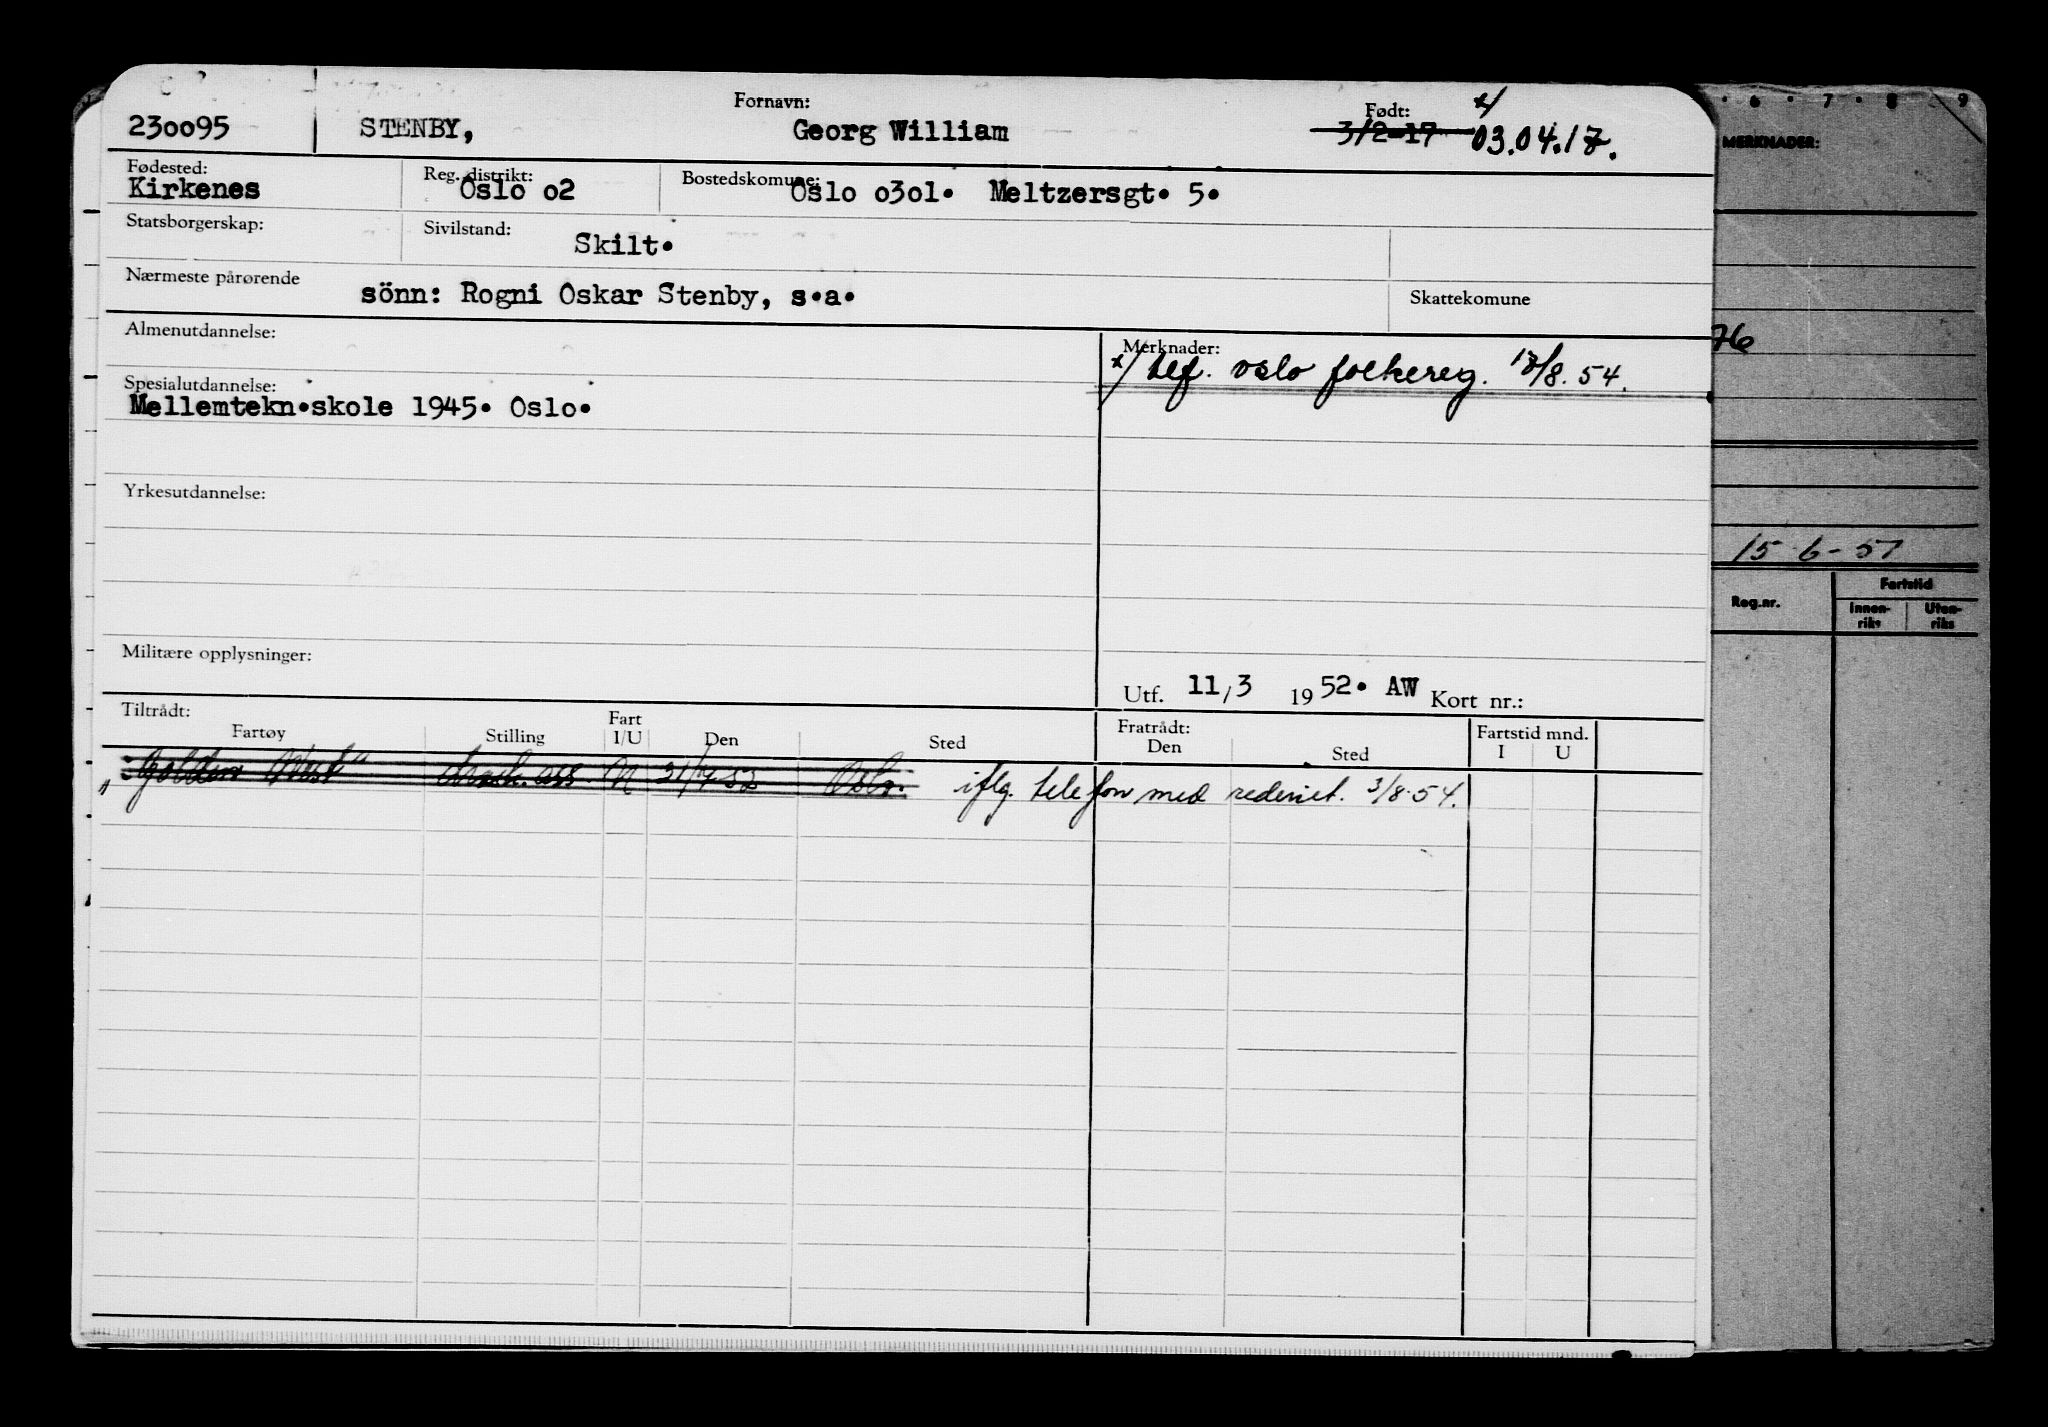 Fornavn: Født: x/
230095 STENBY, Georg William 3/2-17 03.04.17.
Fødested: Reg. distrikt: Bostedskomune:
Kirkenes Oslo o2 Oslo o3o1. Meltzersgt. 5.
Statsborgerskap: Sivilstand: Skilt.
Nærmeste pårørende sönn: Rogni Oskar Stenby, s.a. Skattekomune
Almenutdannelse: Merknader:
x/ tlf. oslo folkereg. 13/8.54.
Spesialutdannelse:
Mellemtekn.skole 1945. Oslo.
Yrkesutdannelse:
Militære opplysninger:
Utf. 11/3 1952. AW Kort nr.:
Tiltrådt: Fratrådt:
Fartøy Stilling Fart I/U Den Sted Den Sted Fartstid mnd. I U
"Golden West" ass. U Oslo. iflg. telefon med rederiet. 3/8.54.
6 7 8 9
MERKNADER:
76
15-6-51
Reg.nr. Fartstid
Innen-riks Uten-riks